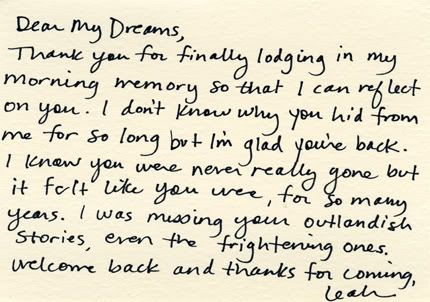 Dear My Dreams,
Thank you for finally lodging in my
morning memory so that I can reflect
on you. I don't know why you hid from
me for so long but I'm glad you're back.
I know you were never really gone but
it felt like you were, for so many
years. I was missing your outlandish
stories, even the frightening ones.
Welcome back and thanks for coming,
Leah